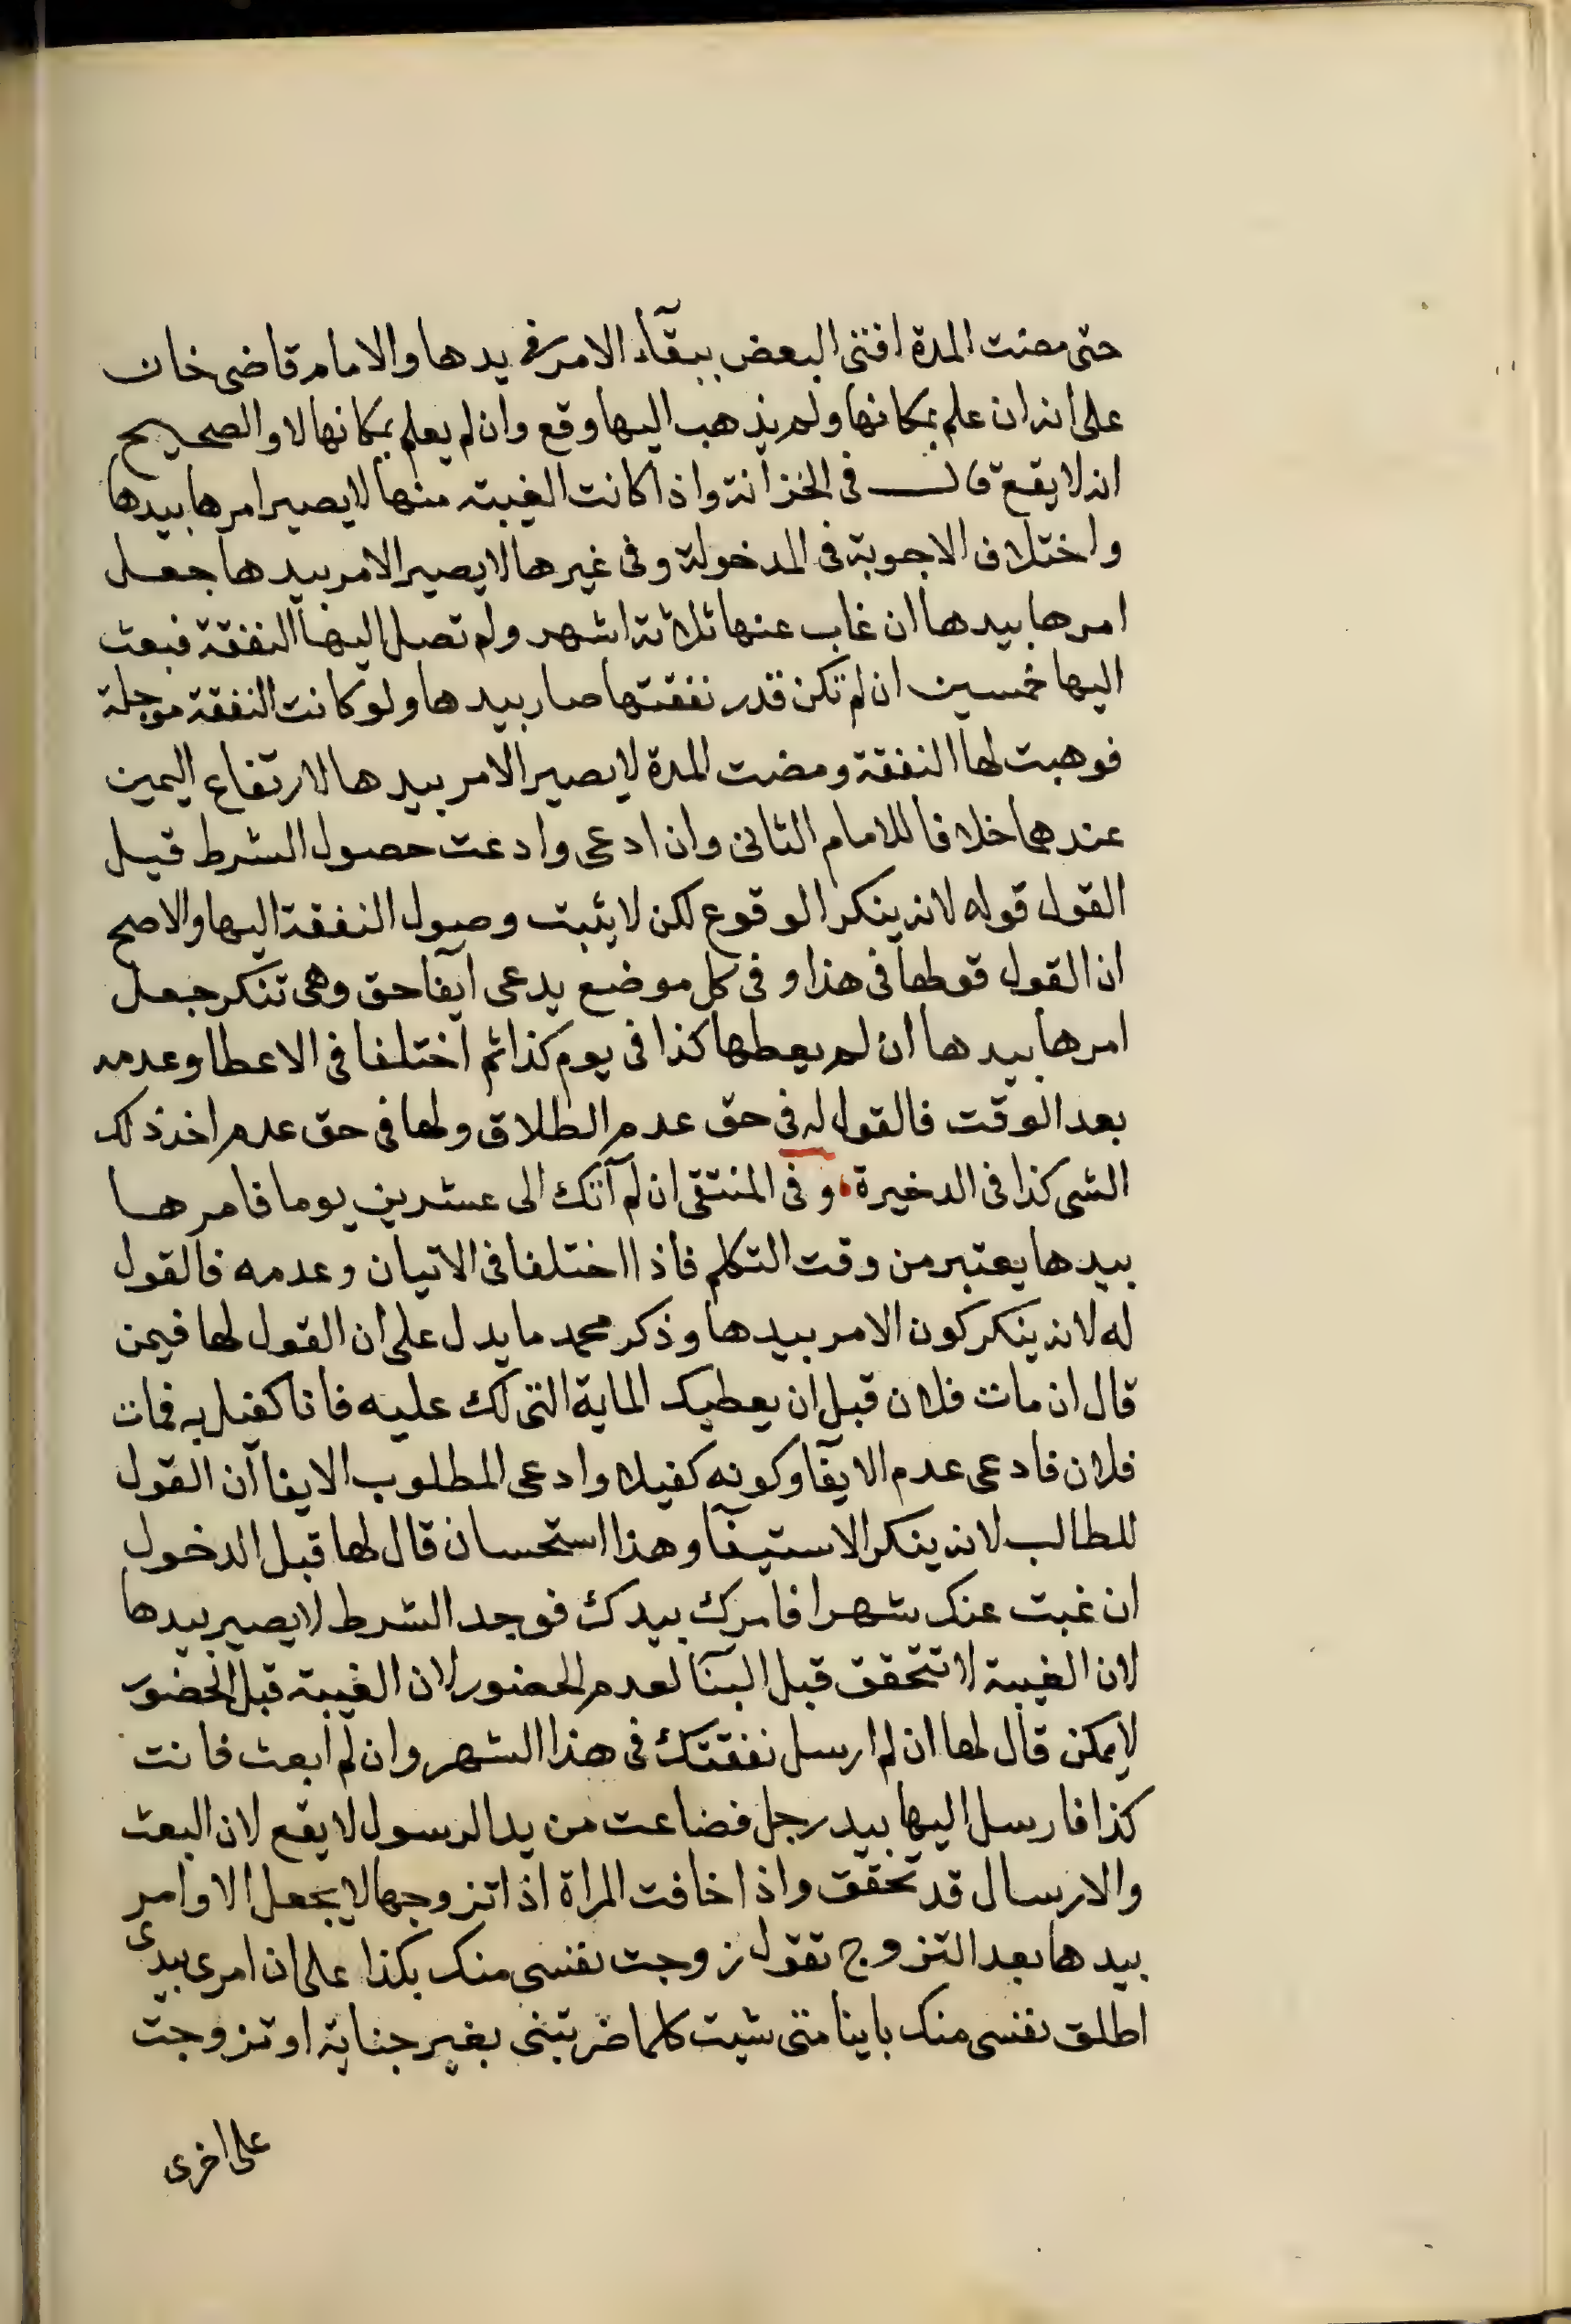 حتى مضت المدة افتى البعض ببقآء الامر فى يدها والامام قاضى خان
على انه ان علم بمكانها ولم يذهب اليها وقع وان لم يعلم بمكانها لا والصحيح
انه لا يقع قال فى الخزانة واذا كانت الغيبة منها لا يصير امرها بيدها
واختلاف الاجوبة فى المدخولة وفى غيرها لا يصير الامر بيدها جعل
امرها بيدها ان غاب عنها ثلاثة اشهر ولم تصل اليها النفقة فبعث
اليها خمسين ان لم تكن قدر نفقتها صار بيدها ولو كانت النفقة موجلة
فوهبت لها النفقة ومضت المدة لا يصير الامر بيدها لارتفاع اليمين
عندهما خلافا للامام الثانى وان ادعى وادعت حصول الشرط قيل
القول قوله لانه ينكر الوقوع لكن لا يثبت وصول النفقة اليها والاصح
ان القول قولها فى هذا و فى كل موضع يدعى ايفآ حق وهى تنكر جعل
امرها بيدها ان لم يعطها كذا فى يوم كذا ثم اختلفا فى الاعطا وعدمه
بعد الوقت فالقول له فى حق عدم الطلاق ولها فى حق عدم اخذ ذلك
الشى كذا فى الدخيرة وفى المنتقى ان لم آتك الى عشرين يوما فامرها
بيدها يعتبر من وقت التكلم فاذا اختلفا فى الاتيان وعدمه فالقول
له لانه ينكر كون الامر بيدها وذكر محمد ما يدل على ان القول لها فيمن
قال ان مات فلان قبل ان يعطيك الماية التى لك عليه فانا كفيل به فمات
فلان فادعى عدم الايفآ وكونه كفيلا وادعى المطلوب الايفا ان القول
للطالب لانه ينكر الاستيفآ وهذا استحسان قال لها قبل الدخول
ان غبت عنك شهرا فامرك بيدك فوجد الشرط لا يصير بيدها
لان الغيبة لا تتحقق قبل البنآ لعدم الحضور لان الغيبة قبل الحضور
لا يمكن قال لها ان لم ارسل نفقتك فى هذا الشهر وان لم ابعث فانت
كذا فارسل اليها بيد رجل فضاعت من يد الرسول لا يقع لان البعث
والارسال قد تحقق واذا خافت المراة اذا تزوجها لا يجعل الاوامر
بيدها بعد التزوج تقول زوجت نفسى منك بكذا على ان امرى بيدى
اطلق نفسى منك باينا متى شيت كلما ضربتنى بغير جناية او تزوجت
على اخرى